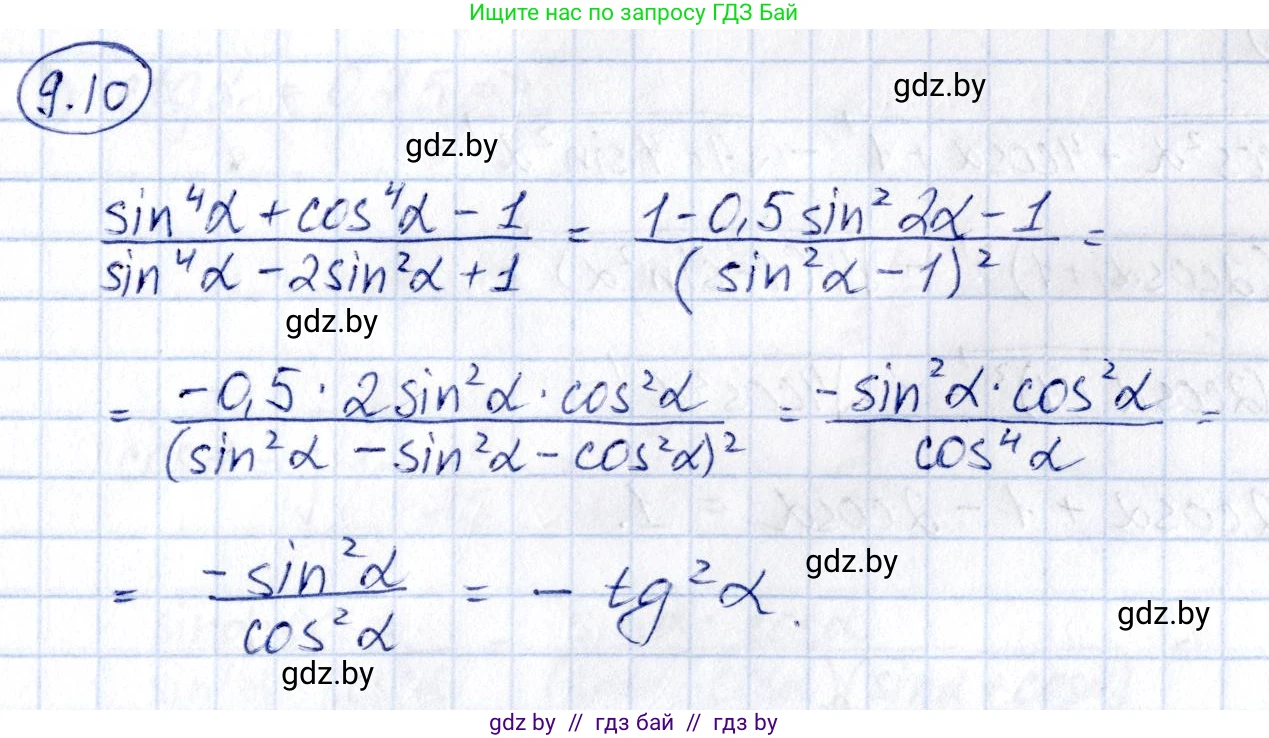 Ищите нас по запросу ГДЗ Бай
9.10
gdz.by
gdz.by
sin⁴α + cos⁴α - 1 / sin⁴α - 2sin²α + 1 = 1 - 0,5 sin² 2α - 1 / (sin²α - 1)² =
gdz.by
= -0,5 · 2 sin²α · cos²α / (sin²α - sin²α - cos²α)² = -sin²α · cos²α / cos⁴α =
= -sin²α / cos²α = - tg²α.
gdz.by
gdz.by
gdz.by
gdz by // гдз бай // gdz by